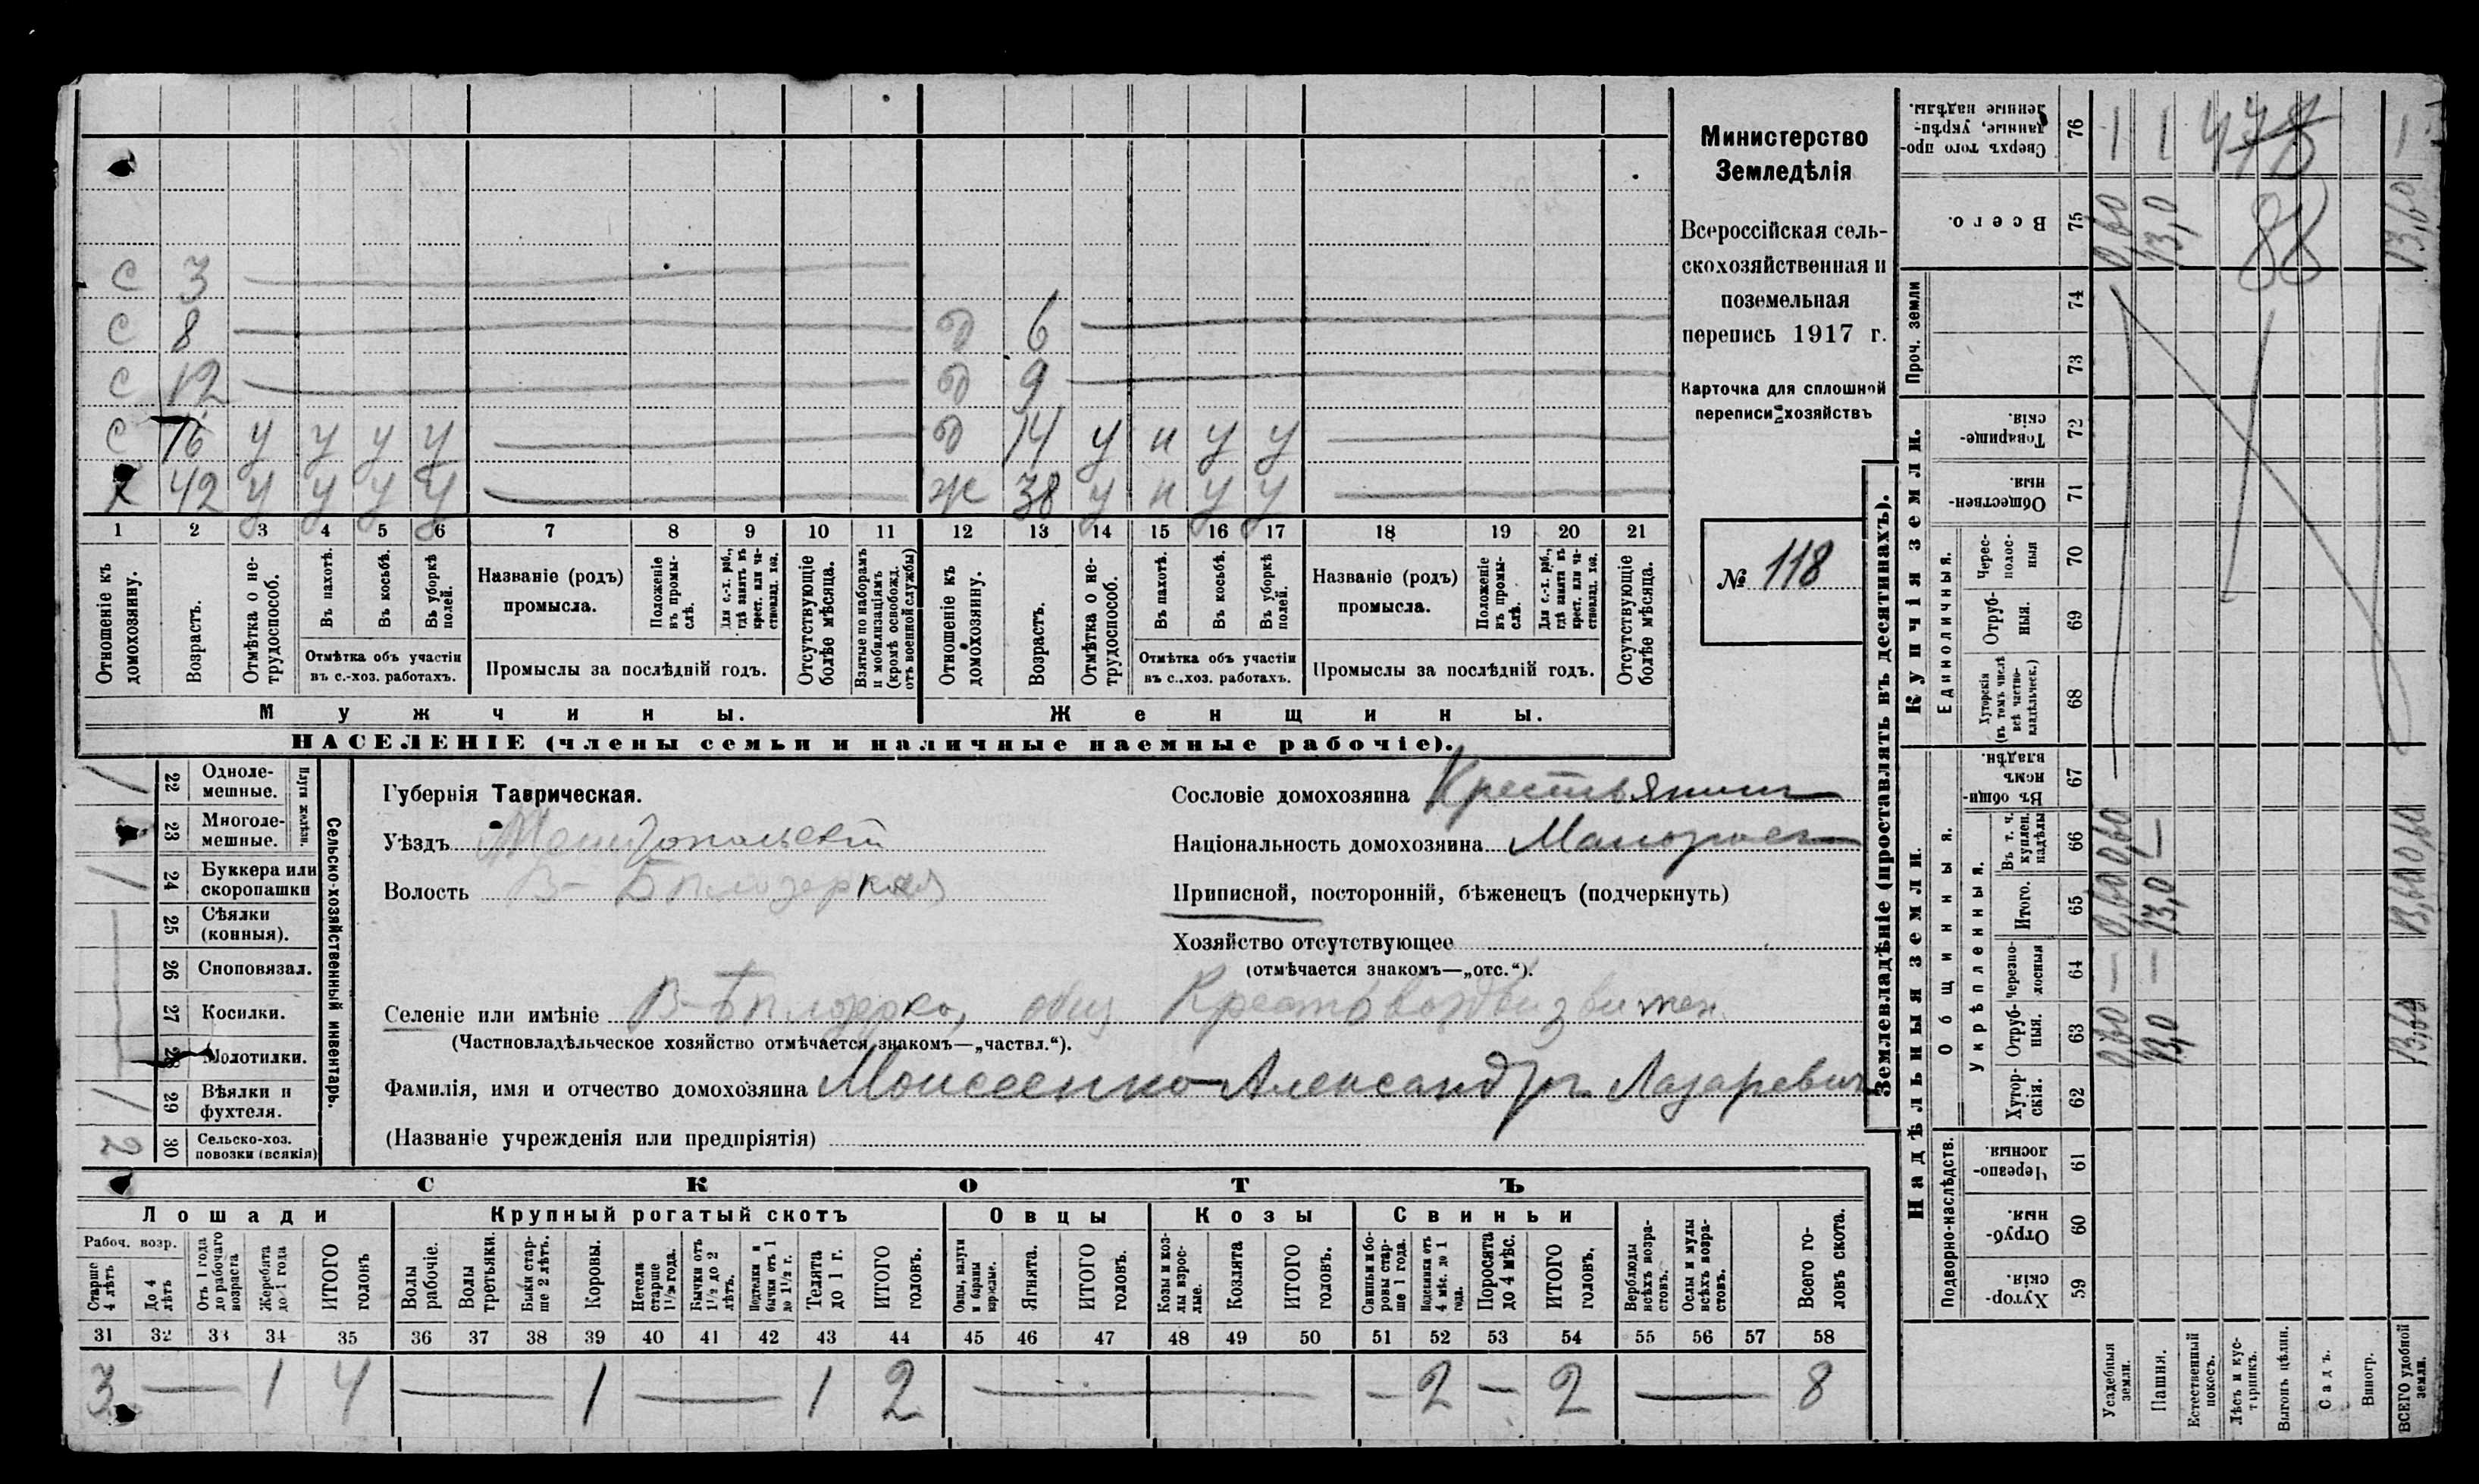 С 3
С 8 Д 6
С 12 Д 9
С 16 у у у у Д 14 у н у у
Х 42 у у у у Ж 38 у н у у
1 2 3 4 5 6 7 8 9 10 11 12 13 14 15 16 17 18 19 20 21
Отношеніе къ домохозяину.
Возрастъ.
Отмѣтка о не-трудоспособ.
Въ пахотѣ.
Въ косьбѣ.
Въ уборкѣ полей.
Отмѣтка объ участіи
въ с.-хоз. работахъ.
Названіе (родъ)
промысла.
Положеніе въ промы-слѣ.
Для с.-х. раб., гдѣ занятъ въ крест. или ча-стновлад. хоз.
Промыслы за послѣдній годъ.
Отсутствующіе болѣе мѣсяца.
Взятые по наборамъ и мобилизаціямъ (кромѣ освобожд. отъ военной службы)
Отношеніе къ домохозяину.
Возрастъ.
Отмѣтка о не-трудоспособ.
Въ пахотѣ.
Въ косьбѣ.
Въ уборкѣ полей.
Отмѣтка объ участіи
въ с.-хоз. работахъ.
Названіе (родъ)
промысла.
Положеніе въ промы-слѣ.
Для с.-х. раб., гдѣ занята въ крест. или ча-стновлад. хоз.
Промыслы за послѣдній годъ.
Отсутствующіе болѣе мѣсяца.
Мужчины. Женщины.
НАСЕЛЕНІЕ (члены семьи и наличные наемные рабочіе).
Министерство
Земледѣлія
Всероссійская сель-
скохозяйственная и
поземельная
перепись 1917 г.
Карточка для сплошной
переписи хозяйствъ
№ 118
Сельско-хозяйственный инвентарь.
Плуги желѣзн.
22 Одноле-мешные. 1
23 Многоле-мешные.
24 Буккера или скоропашки 1
25 Сѣялки (конныя).
26 Сноповязал.
27 Косилки.
28 Молотилки.
29 Вѣялки и фухтеля. 1
30 Сельско-хоз. повозки (всякія) 2
Губернія Таврическая.
Уѣздъ Мелитопольскій
Волость В-Бѣлозерская
Сословіе домохозяина Крестьянин
Національность домохозяина Малоросс
Приписной, посторонній, бѣженецъ (подчеркнуть)
Хозяйство отсутствующее
(отмѣчается знакомъ—„отс.“).
Селеніе или имѣніе В-Бѣлозерка, общ Крестовоздвизвижен.
(Частновладѣльческое хозяйство отмѣчается знакомъ—„частвл.“).
Фамилія, имя и отчество домохозяина Моисеенко Александръ Лазаревич
(Названіе учрежденія или предпріятія)
СКОТЪ
Лошади Крупный рогатый скотъ Овцы Козы Свиньи
Рабоч. возр.
Старше 4 лѣтъ
До 4 лѣтъ
Отъ 1 года до рабочаго возраста
Жеребята до 1 года
ИТОГО головъ
Волы рабочіе.
Волы третьяки.
Быки стар-ше 2 лѣтъ.
Коровы.
Нетели старше 1½ года.
Бычки отъ 1½ до 2 лѣтъ.
Подтелки и бычки отъ 1 до 1½ г.
Телята до 1 г.
ИТОГО головъ.
Овцы, валухи и бараны взрослые.
Ягнята.
ИТОГО головъ.
Козы и коз-лы взрос-лые.
Козлята
ИТОГО головъ.
Свиньи и бо-ровы стар-ше 1 года.
Подсвинки отъ 4 мѣс. до 1 года.
Поросята до 4 мѣс.
ИТОГО головъ.
Верблюды всѣхъ возра-стовъ.
Ослы и мулы всѣхъ возра-стовъ.
Всего го-ловъ скота.
31 32 33 34 35 36 37 38 39 40 41 42 43 44 45 46 47 48 49 50 51 52 53 54 55 56 57 58
3 — 1 4 — 1 — 1 2 — — 2 — 2 — 8
Землевладѣніе (проставлять въ десятинахъ).
Купчія земли.
Надѣльныя земли.
Проч. земли
Единоличныя.
Общинныя.
Укрѣпленныя.
Подворно-наслѣдств.
76 Сверхъ того про-данные, укрѣп-ленные надѣлы. 1 1 1
478
75 Всего. 0,60 13,0 13,60
88
74
73
72 Товарище-скія.
71 Обществен-ныя.
70 Черес-полос-ныя
69 Отруб-ныя.
68 Хуторскія (въ томъ числѣ всѣ частно-владѣльческ.)
67 Въ общи-номъ владѣн.
66 Въ т. ч. куплен. надѣлы 0,60 — 0,60
65 Итого. 0,60 13,0 13,60
64 Черезпо-лосныя — —
63 Отруб-ныя. 0,60 13,0 13,60
62 Хутор-скія.
61 Черезпо-лосныя.
60 Отруб-ныя.
59 Хутор-скія.
Усадебныя земли.
Пашня.
Естественный покосъ.
Лѣсъ и кус-тарникъ.
Выгонъ цѣлин.
Садъ.
Виногр.
ВСЕГО удобной земли.